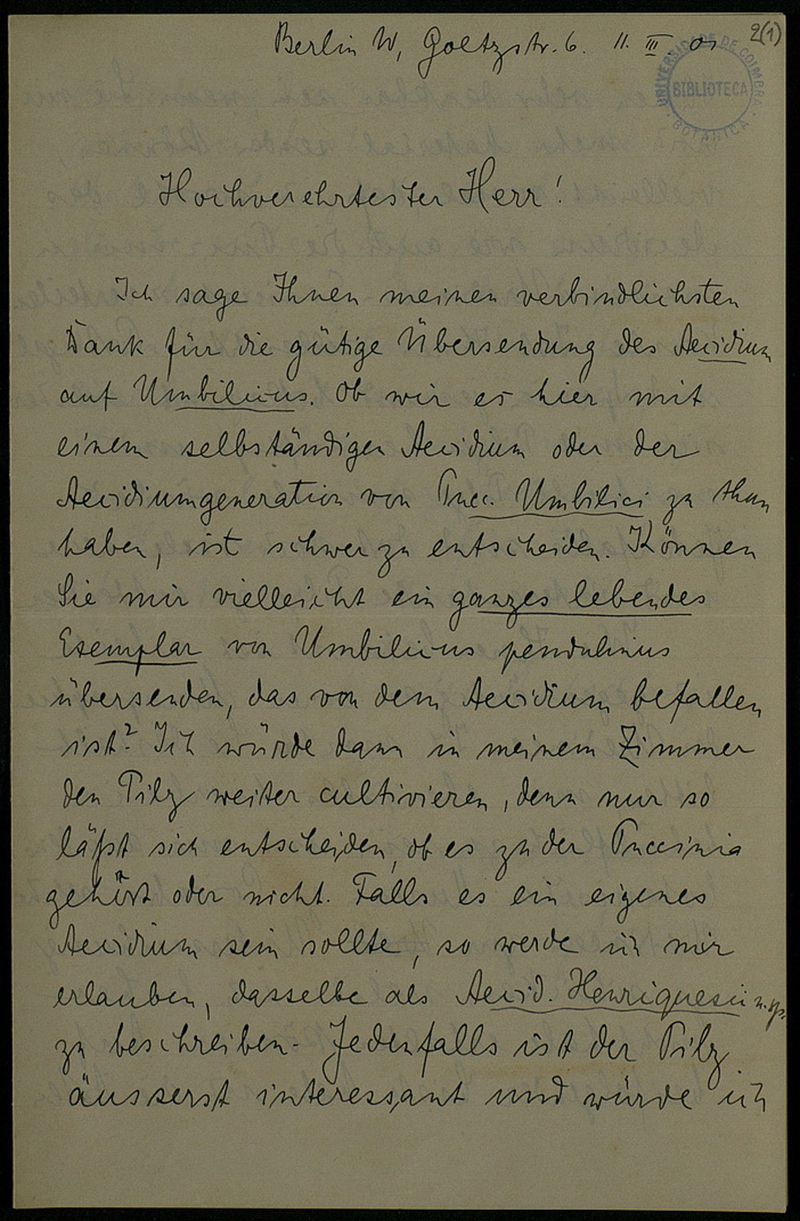 2(1)
Berlin W, Goltzstr. 6. 11. III. 01
UNIVERSIDADE DE COIMBRA
BIBLIOTECA
BOTANICA
Hochverehrtester Herr!
Ich sage Ihnen meinen verbindlichsten
Dank für die gütige Übersendung des Aecidium
auf Umbilicus. Ob wir es hier mit
einem selbständigen Aecidium oder der
Aecidiumgeneration von Pucc. Umbilici zu thun
haben, ist schwer zu entscheiden. Können
Sie mir vielleicht ein ganzes lebendes
Exemplar von Umbilicus pendulinus
übersenden, das von dem Aecidium befallen
ist? Ich würde dann in meinem Zimmer
den Pilz weiter cultivieren, denn nur so
läßt sich entscheiden, ob es zu der Puccinia
gehört oder nicht. Falls es ein eigenes
Aecidium sein sollte, so werde ich mir
erlauben, dasselbe als Aecid. Henriquesii n. sp.
zu beschreiben. Jedenfalls ist der Pilz
äusserst interessant und würde ich